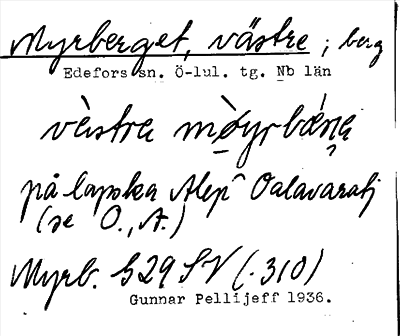 Myrberget, västre ; berg
Edefors sn. Ö-lul. tg. Nb län
västra
på lapska Alep Oalavaratj
(se O., A.)
Myrb. 529 SV (.310)
Gunnar Pellijeff 1936.